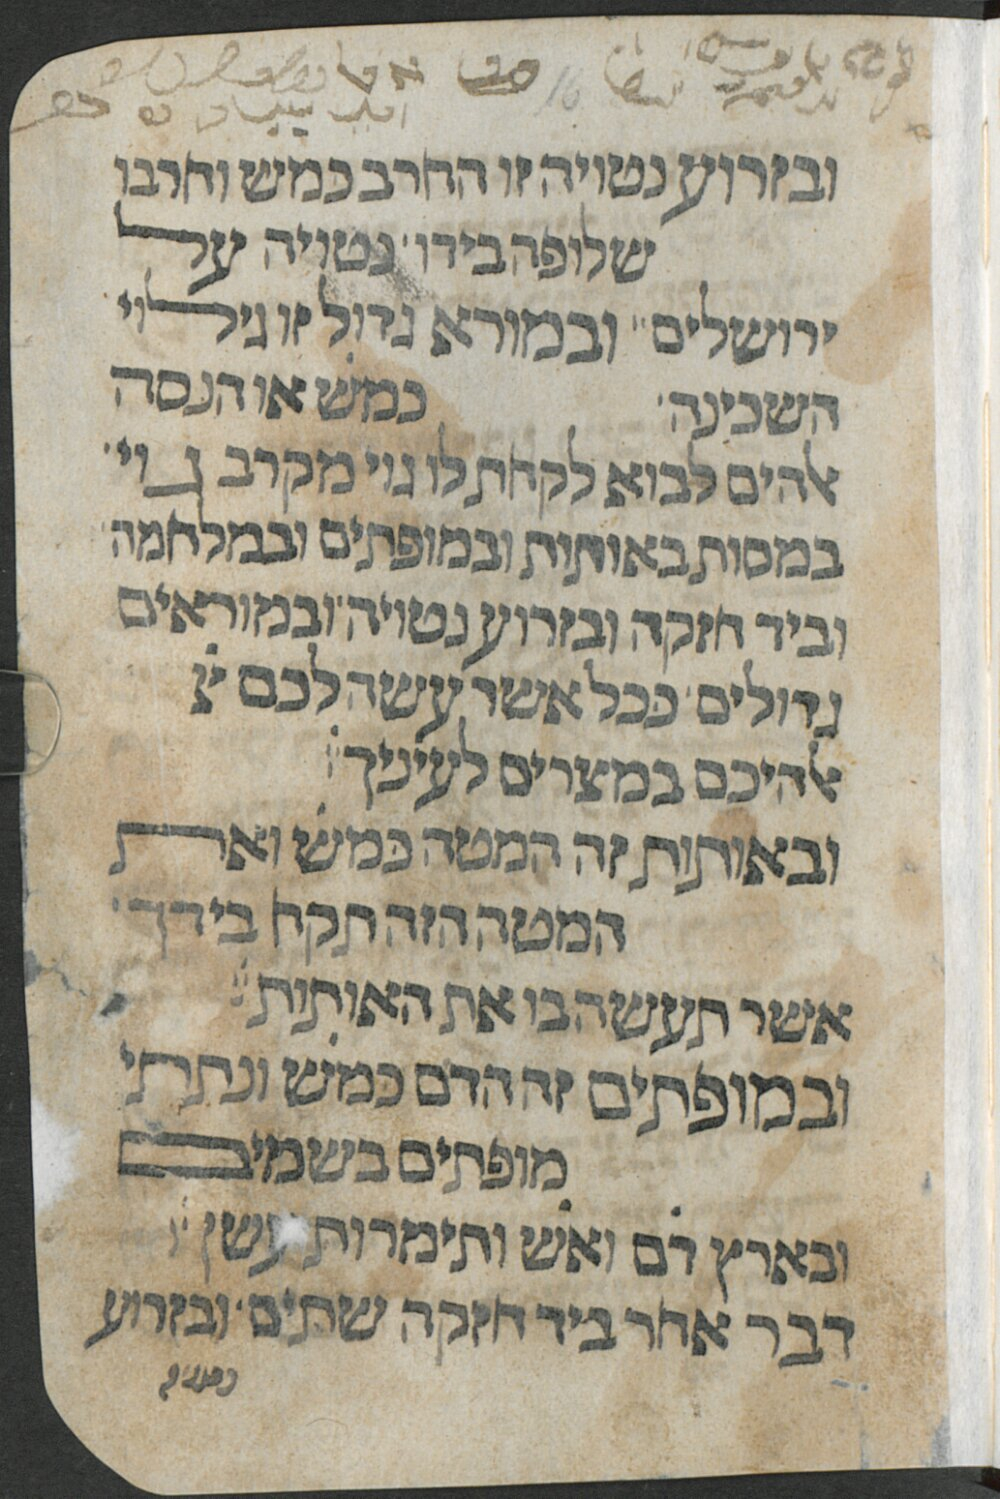 ובזרוע נטויה זו החרב כמש וחרבו
שלופה בידו נטויה על
ירושלים ובמורא גדול זו גילוי
השכינה כמש או הנסה
אלהים לבוא לקחת לו גוי מקרב גוי
במסות באותות ובמופתים ובמלחמה
וביד חזקה ובזרוע נטויה ובמוראים
גדולים ככל אשר עשה לכם ייי
אלהיכם במצרים לעיניך
ובאותות זה המטה כמש ואת
המטה הזה תקח בידך
אשר תעשה בו את האותות
ובמופתים זה הדם כמש ונתתי
מופתים בשמים
ובארץ דם ואש ותימרות עשן
דבר אחר ביד חזקה שתים ובזרוע